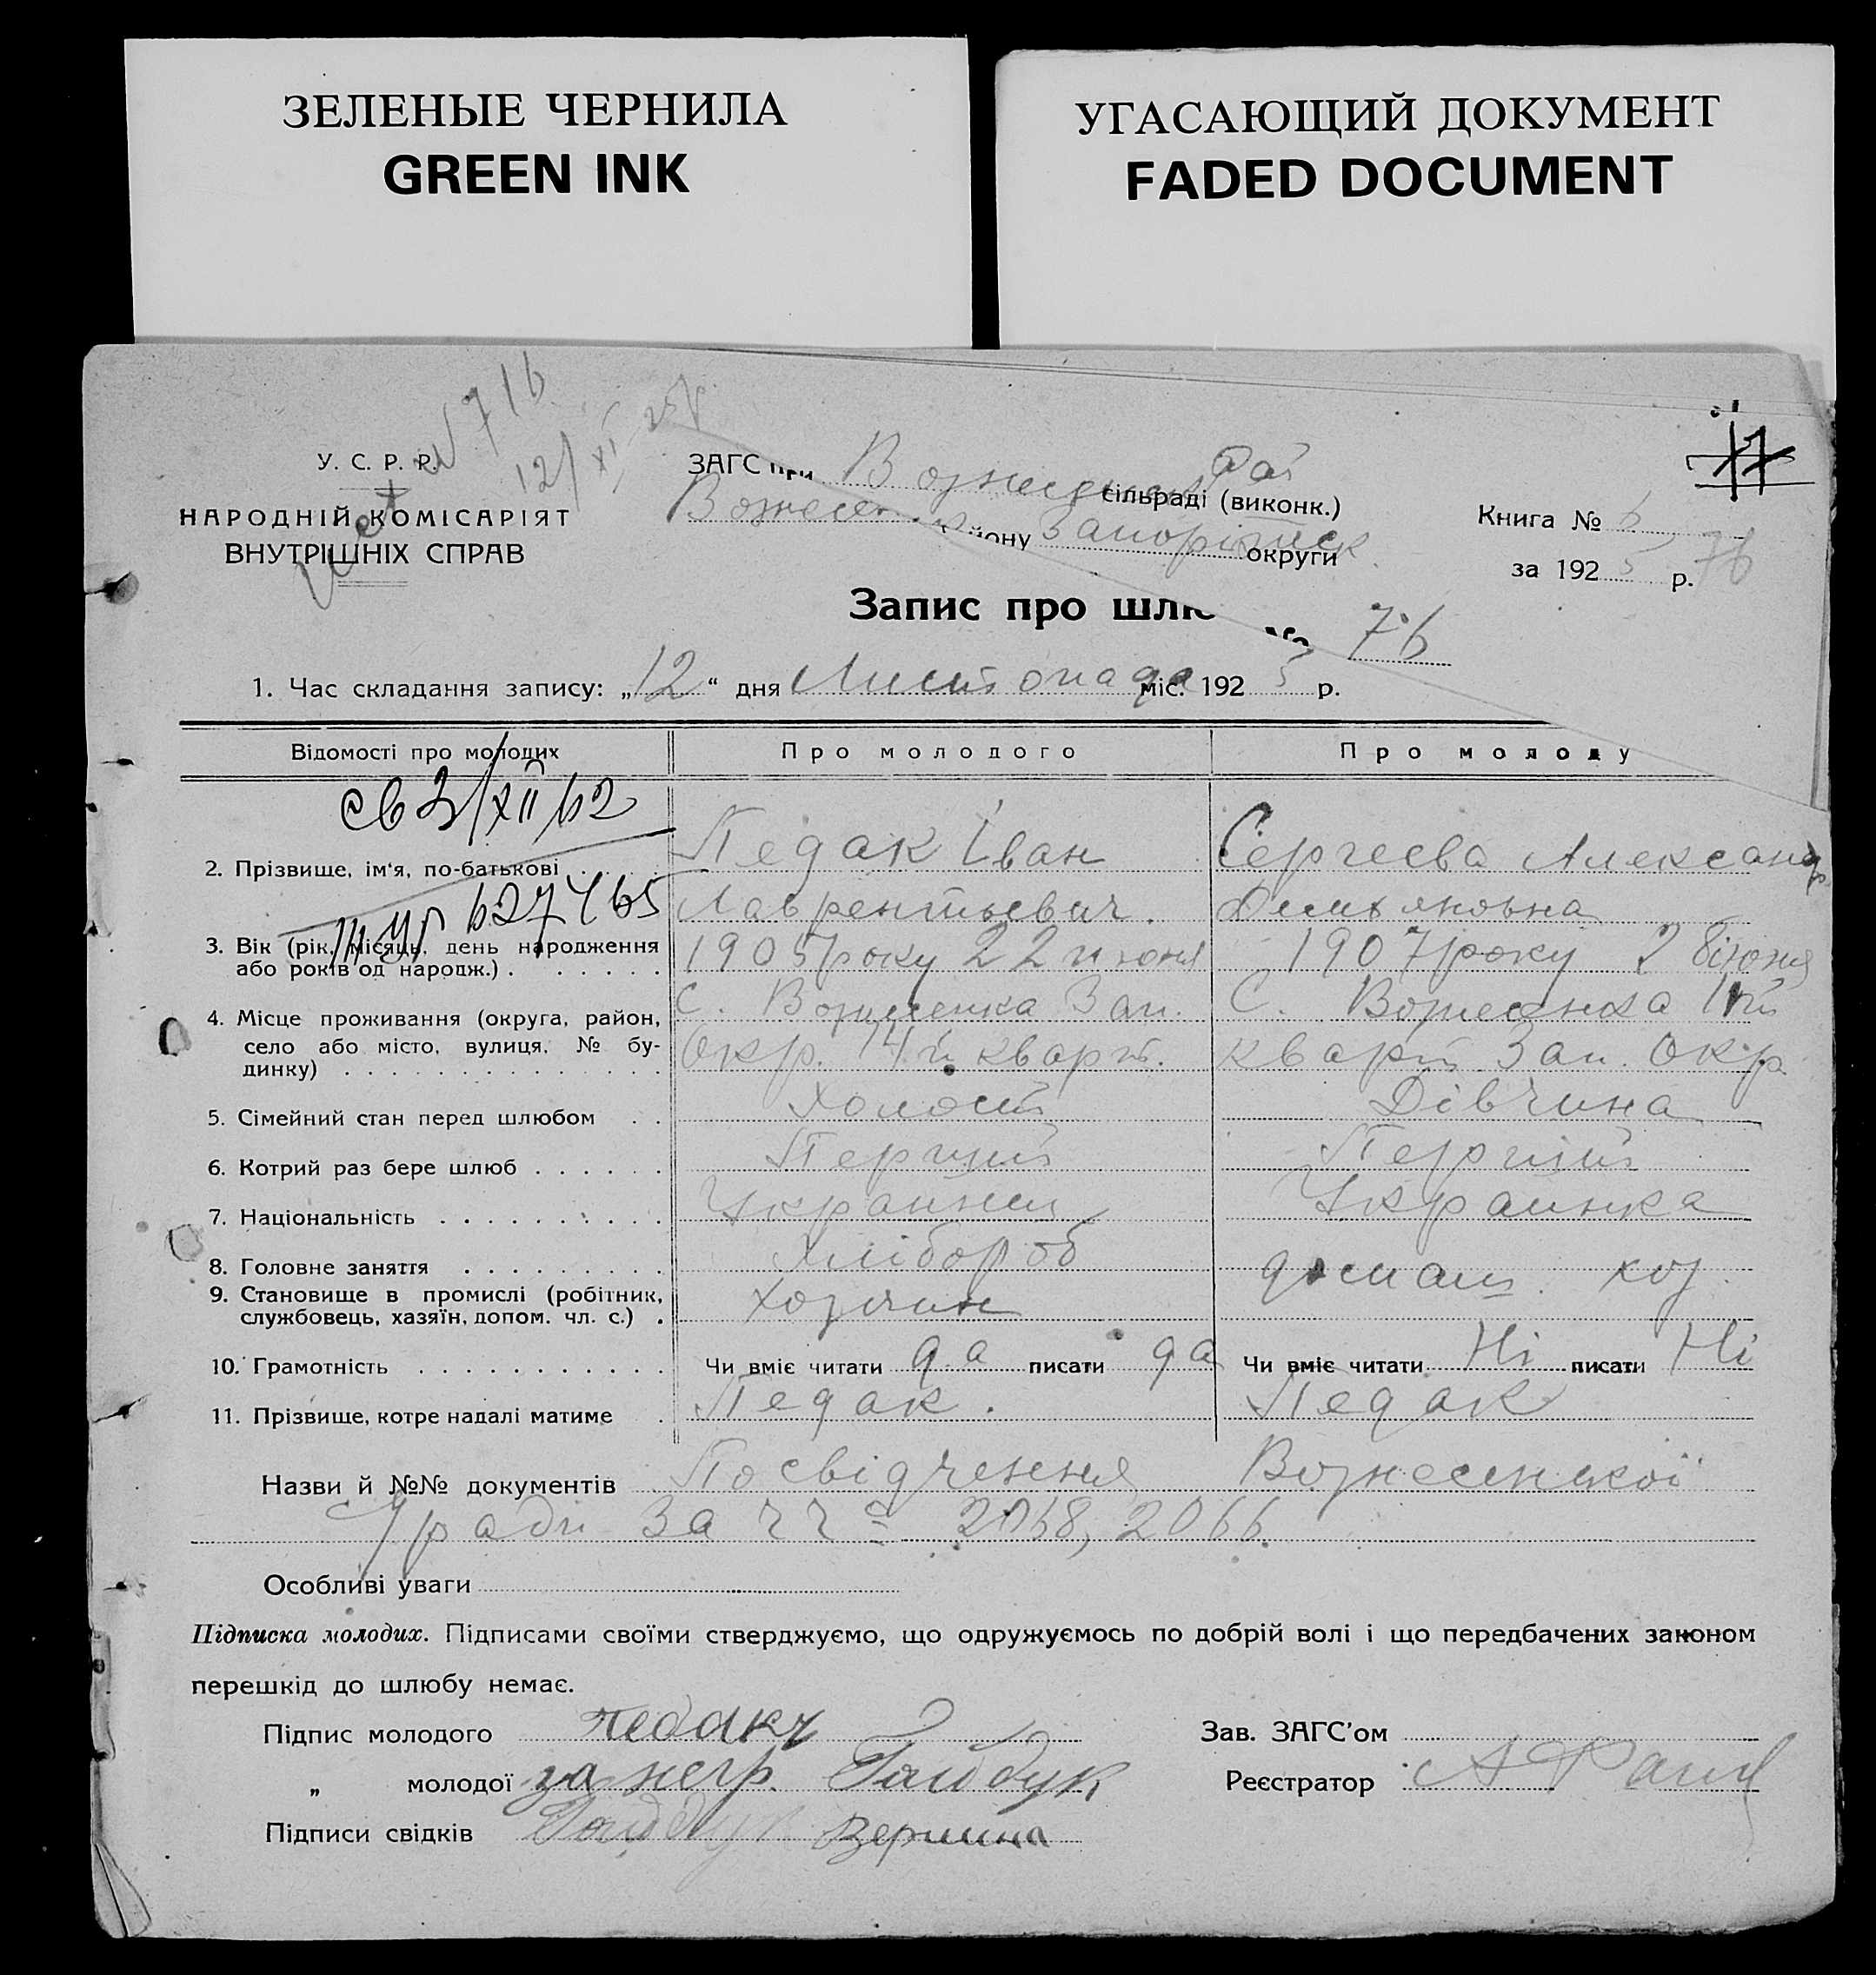 ЗЕЛЕНЫЕ ЧЕРНИЛА
GREEN INK
УГАСАЮЩИЙ ДОКУМЕНТ
FADED DOCUMENT
12/XI 25р.
У. С. Р. Р.
НАРОДНІЙ КОМІСАРІЯТ
ВНУТРІШНІХ СПРАВ
ЗАГС при
сільраді (виконк.)
Запоріжск округи
Книга № 6
за 1925 р. 76
Запис про шлю № 76
1. Час складання запису: „12“ дня Листопада міс. 1925 р.
Відомості про молодих Про молодого Про молоду
св 3/XII 62
2. Прізвище, ім'я, по-батькові Педак Іван Сергеева Александр
627465 Лаврентьевич. Демьяновна
3. Вік (рік, місяць, день народження 1905 року 22 июня 1907 року
або років од народж.)
4. Місце проживання (округа, район, С. Вознесенка Зап. С. Вознесенка
село або місто, вулиця, № бу- Окр. 14й кварт. кварт Зап. Окр
динку)
5. Сімейний стан перед шлюбом Холост Дівчина
6. Котрий раз бере шлюб Перший Перший
7. Національність Украинец Украинка
8. Головне заняття Хлібороб домаш. хоз.
9. Становище в промислі (робітник, Хозяин
службовець, хазяїн, допом. чл. с.)
10. Грамотність Чи вміє читати да писати да Чи вміє читати Ні писати Ні
11. Прізвище, котре надалі матиме Педак. Педак
Назви й №№ документів Посвідчення Вознесенської
С/ради за чч 2068, 2066
Особливі уваги
Підписка молодих. Підписами своїми стверджуємо, що одружуємось по добрій волі і що передбачених законом
перешкід до шлюбу немає.
Підпис молодого Зав. ЗАГС'ом
„ молодої за негр. Гайдук Реєстратор
Підписи свідків Гайдук Вершина